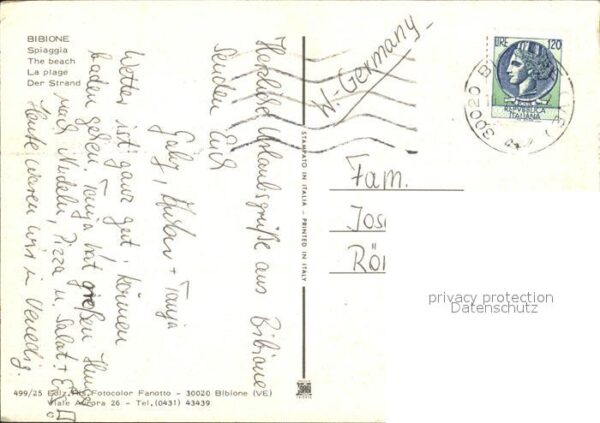 BIBIONE
Spiaggia
The beach
La plage
Der Strand
Herzliche Urlaubsgrüße aus Bibione
senden Euch
Gaby, + Tanja
Wetter ist ganz gut, können
baden gehen. Tanja hat großen Hunger
nach Nudeln, Pizza u. Salat + Eis
Heute waren wir in Venedig.
499/25 Ediz. Fotocolor Fanotto - 30020 Bibione (VE)
Viale Aurora 26 - Tel. (0431) 43439
STAMPATO IN ITALIA - PRINTED IN ITALY
W.-Germany
LIRE 120
REPVBBLICA
ITALIANA
30020 B
Fam.
Jos
Rö
privacy protection
Datenschutz